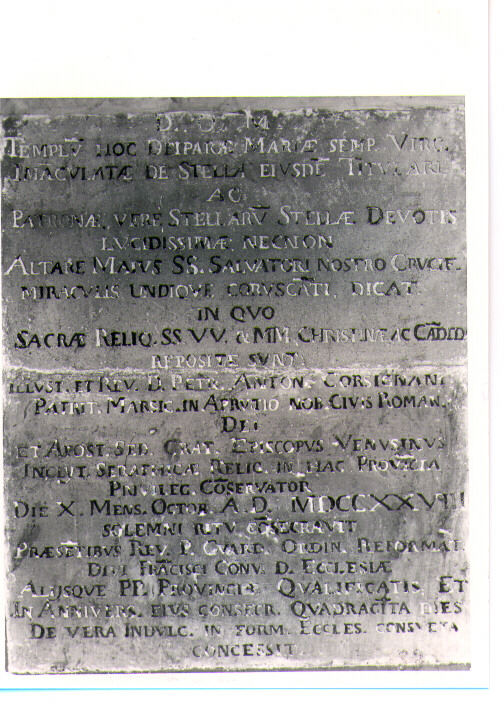 D. O. M.
TEMPLV̄ HOC DEIPARÆ MARIÆ SEMP. VIRG.
IMACULATÆ DE STELLA EIUSDĒ TITULARI
AC
PATRONÆ, VERE STELLARV̄ STELLÆ DEVOTIS
LUCIDISSIMÆ NECNON
ALTARE MAIUS SS. SALVATORI NOSTRO CRUCIF.
MIRACULIS UNDIQVE CORUSCĀTI, DICAT
IN QVO
SACRÆ RELIQ. SS VV. & MM. CHRISTINÆ AC
REPOSITE SVNT.
ILLUST. ET REV. D. PETR. ANTON. CORSIGNANI
PATRIT. MARSIC. IN APRVTIO NOB. CIVIS ROMAN.
DEI
ET APOST. SED. GRAT. EPISCOPVS VENUSINUS
INCLIT. SERAPHICÆ RELIG. IN HAC PROVĪCIA
PRIVILEG. CŌSERVATOR
DIE X. MENS. OCTOB. A. D. MDCCXXVIII
SOLEMNI RITU CŌSECRAVIT
PRÆSĒTIBUS REV. P. GVARD. ORDIN. REFORMAT.
DIVI FRĀCISCI CONV. D. ECCLESIÆ
ALIJSQVE PP. PROVINCIÆ QVALIFICATIS, ET
IN ANNIVERS. EIUS CONSECR. QVADRAGĪTA DIES
DE VERA INDVLG. IN FORM. ECCLES. CONSVETA
CONCESSIT.